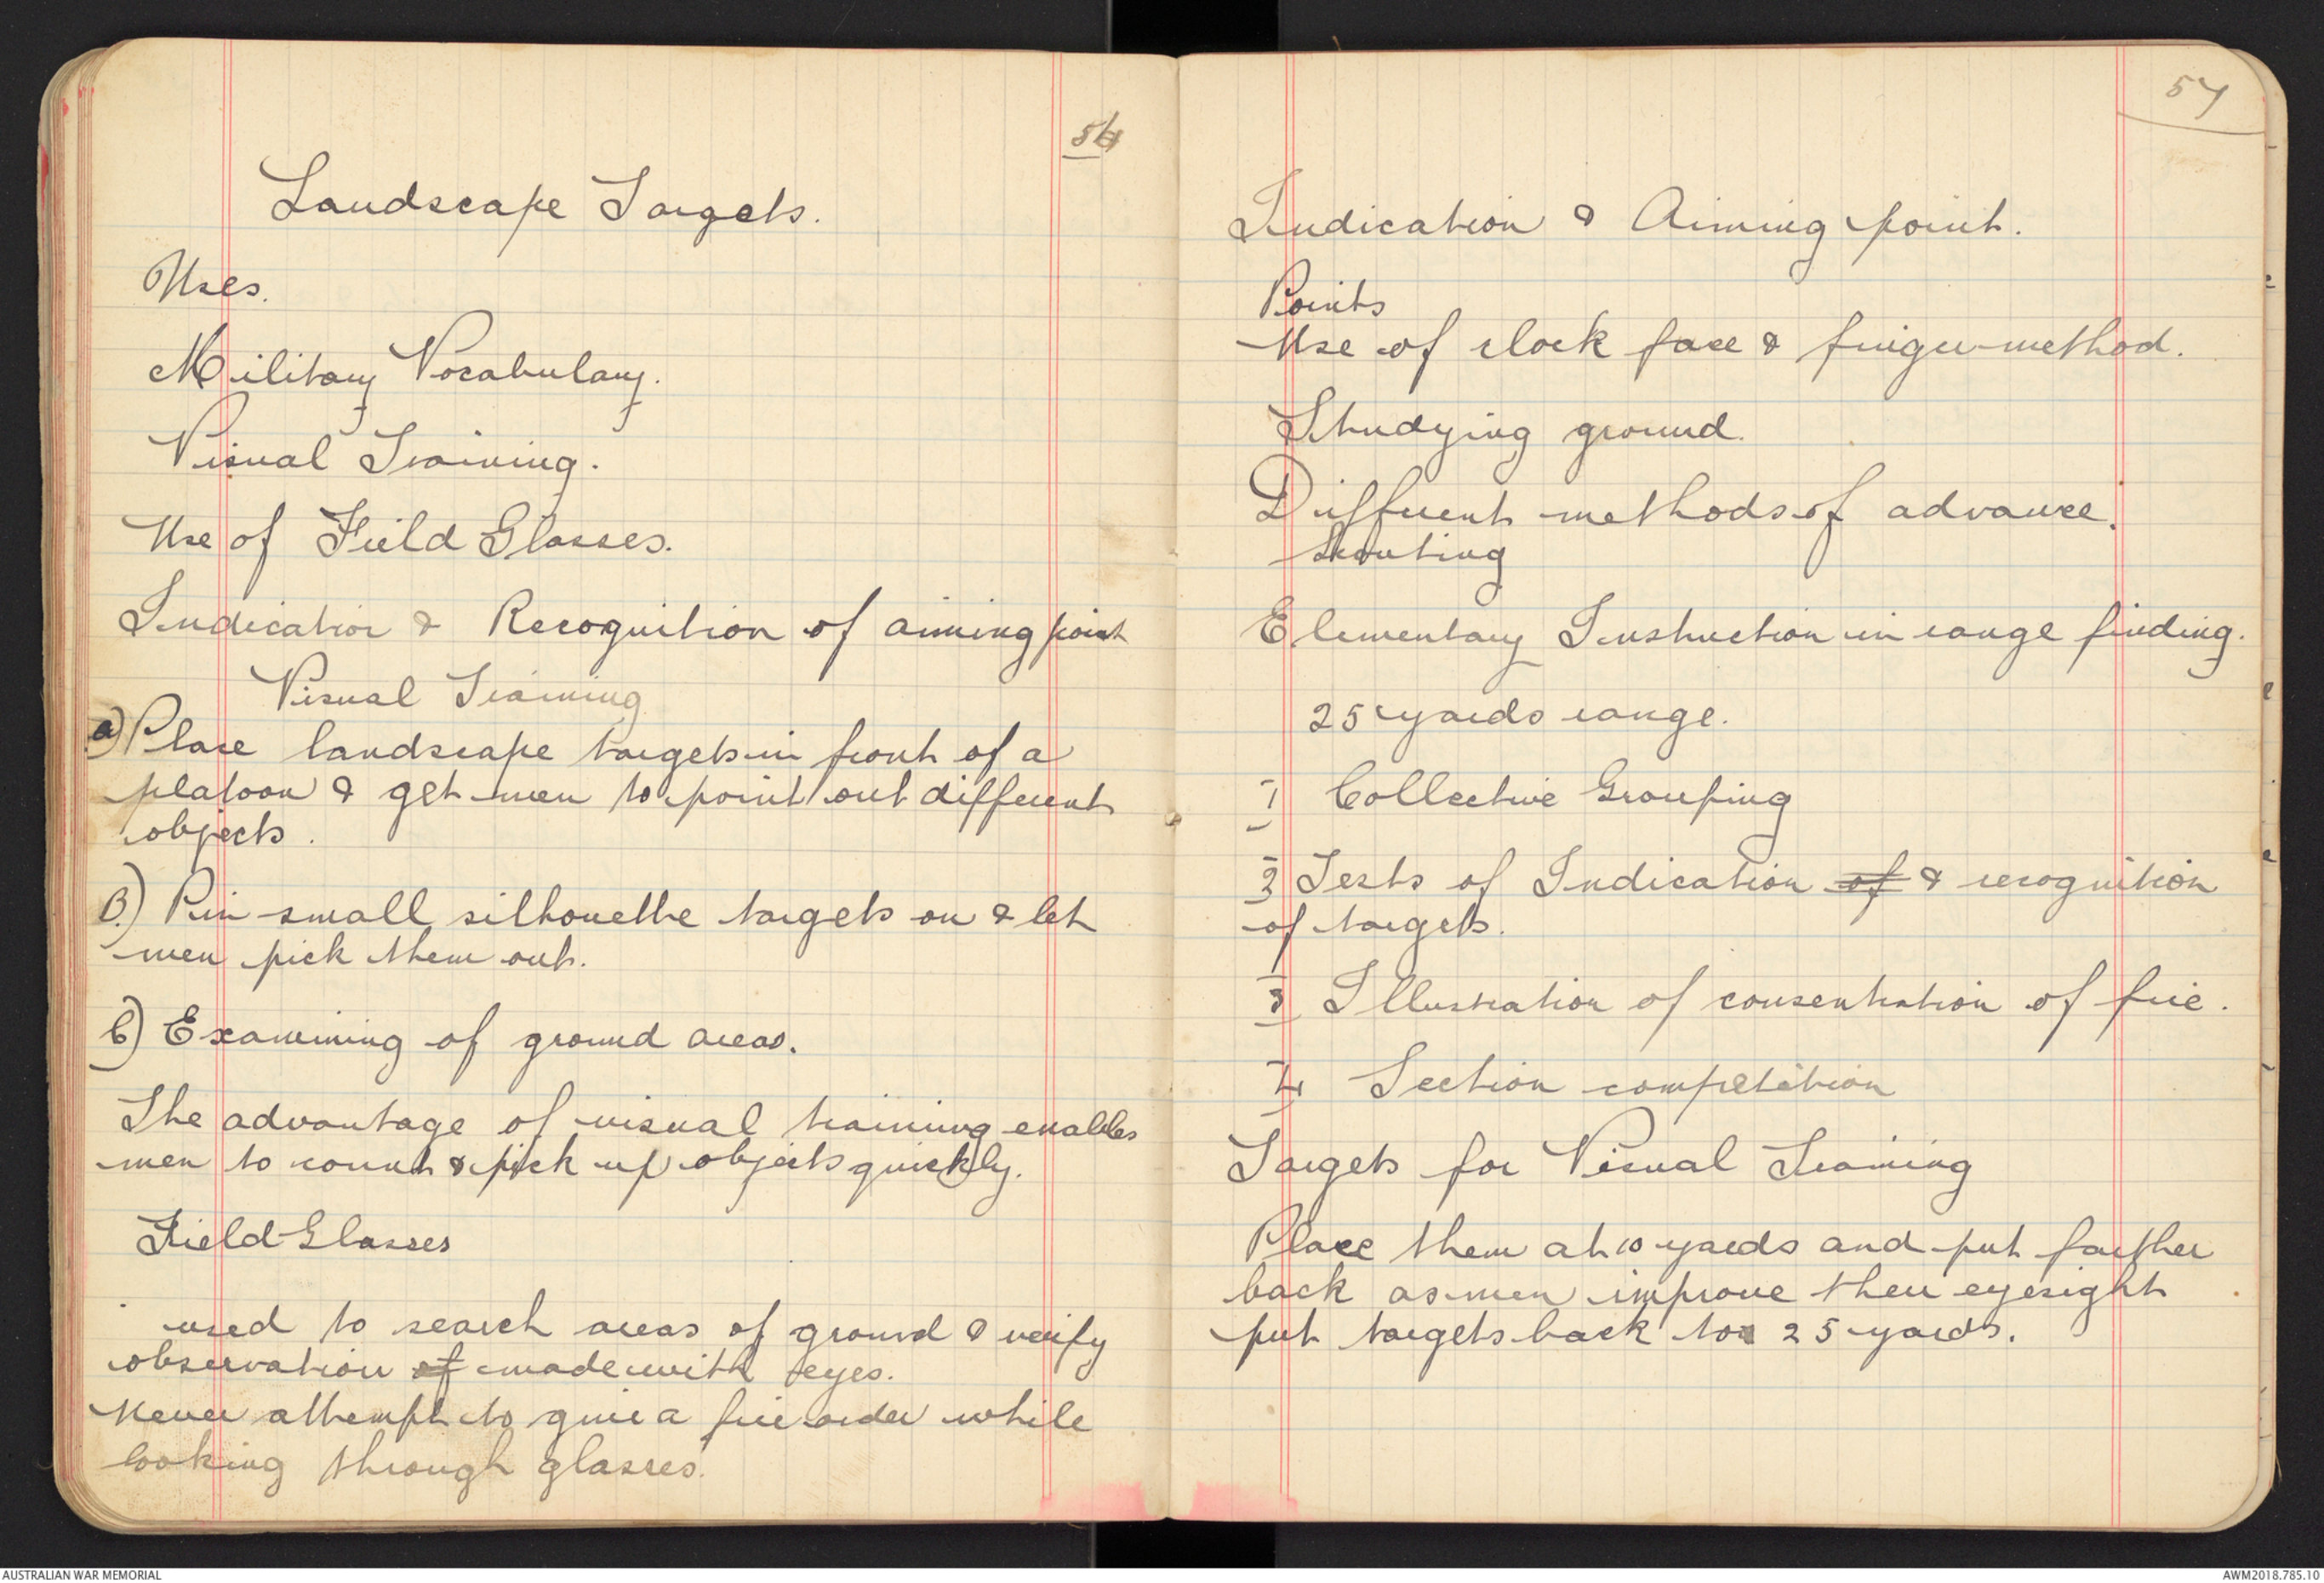 56
Landscape Targets.
Uses.
Military Vocabulary.
Visual Training.
Use of Field Glasses.
Indication & Recognition of aiming point
Visual Training
a) Place landscape targets in front of a
platoon & get men to point out different
objects.
B.) Pin small silhouette targets on & let
men pick them out.
C) Examining of ground areas.
The advantage of visual training enables
men to count & pick up objects quickly.
Field Glasses
used to search areas of ground & verify
observation of made with eyes.
Never attempt to give a fire order while
looking through glasses.
57
Indication & Aiming point.
Points
Use of clock face & finger method.
Studying ground.
Different methods of advance.
Scouting
Elementary Instruction in range finding.
25 yards range.
1 Collective Grouping
2 Tests of Indication of & recognition
of targets.
3 Illustration of consentration of fire.
4 Section competition
Targets for Visual Training
Place them at 10 yards and put farther
back as men improve their eyesight
put targets back to 25 yards.
AUSTRALIAN WAR MEMORIAL
AWM2018.785.10